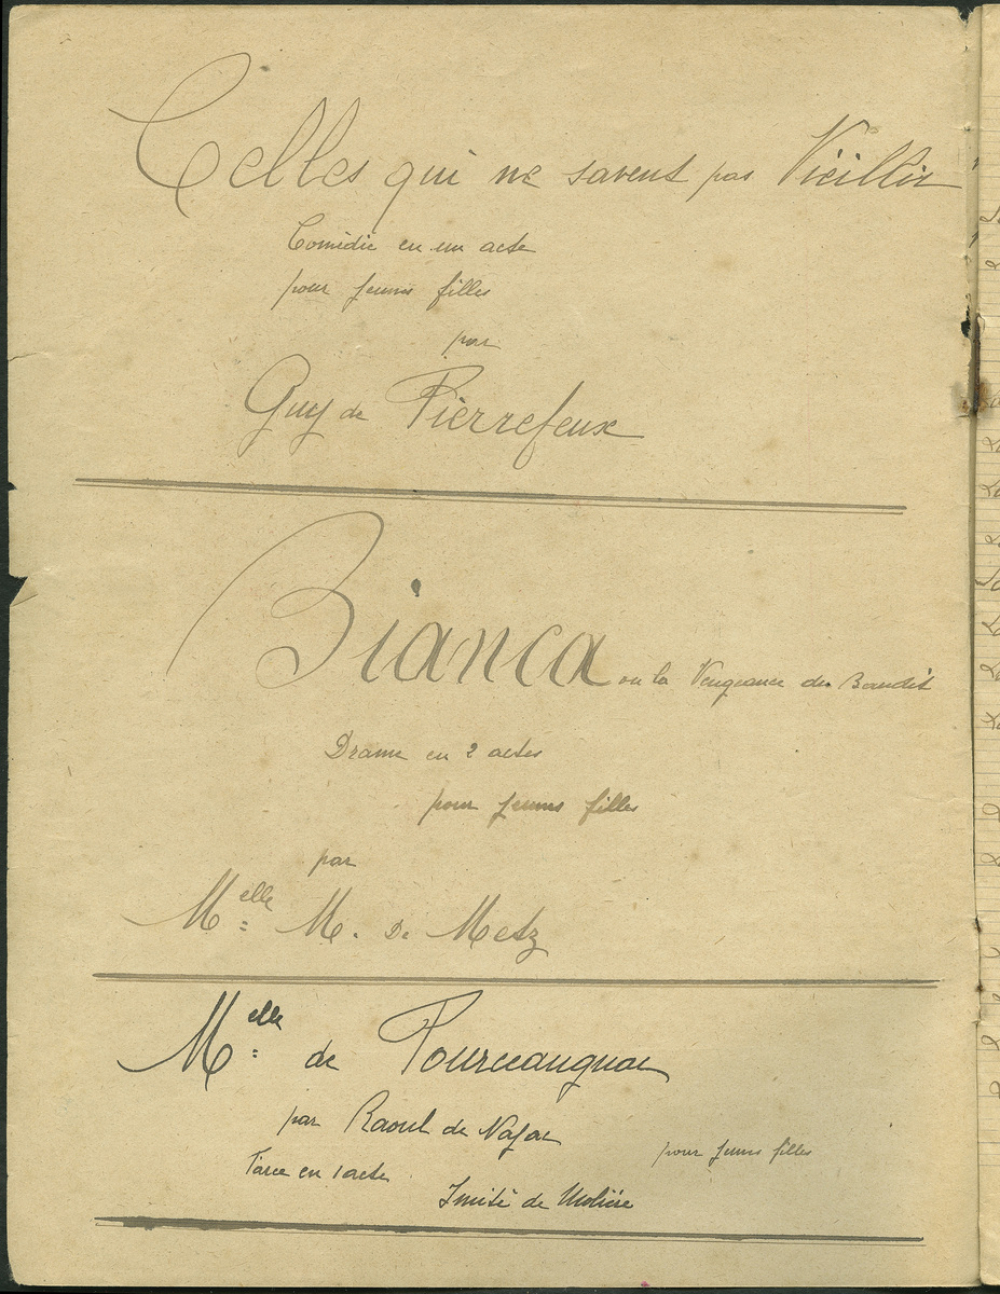 Celles qui ne savent pas Vieillir
Comédie en un acte
pour jeunes filles
par
Guy de Pierrefeux
Bianca ou la Vengeance du Bandit
Drame en 2 actes
pour jeunes filles
par
Melle M. De Metz
Melle de Pourceaugnac
par Raoul de Najac
pour jeunes filles
Farce en 1 acte
Imité de Molière